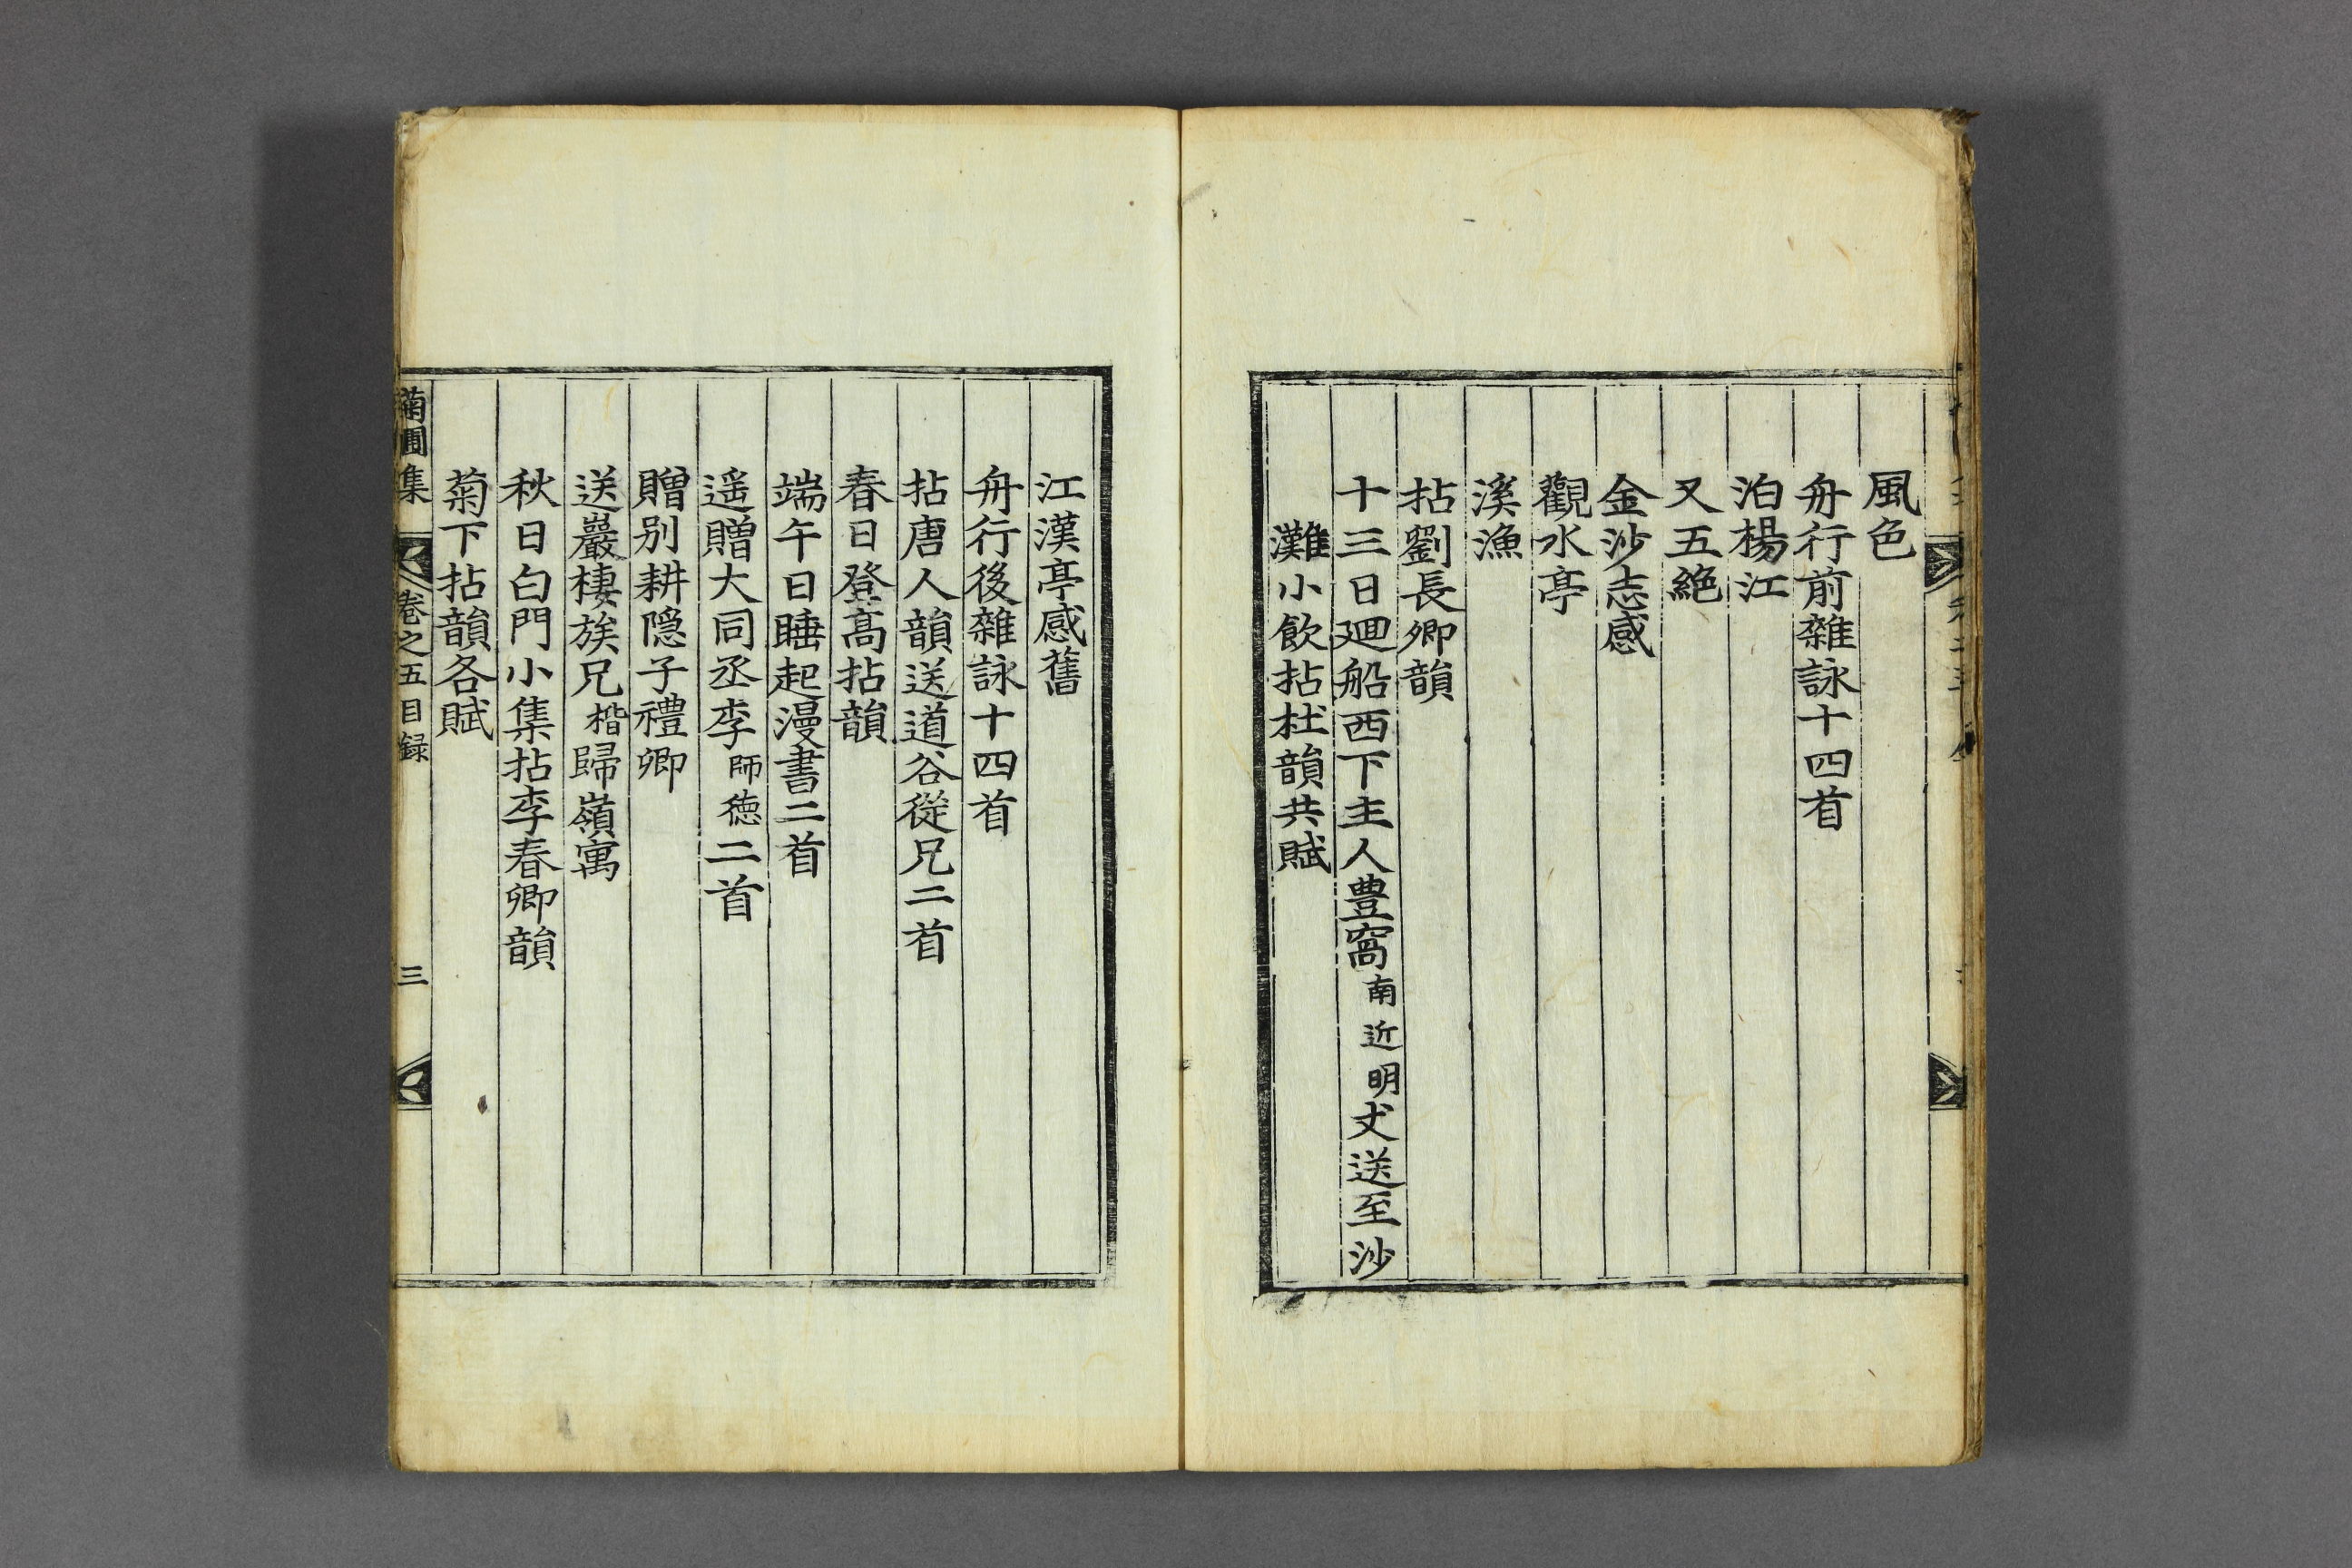 風色
舟行前雜詠十四首
泊楊江
又五絶
金沙志感
觀水亭
溪漁
拈劉長卿韻
十三日廻船西下主人豊窩南近明丈送至沙
灘小飮拈杜韻共賦
江漢亭感舊
舟行後雜詠十四首
拈唐人韻送道谷從兄二首
春日登髙拈韻
端午日睡起漫書二首
遥贈大同丞李師徳二首
贈別耕隠子禮卿
送巖棲族兄楷歸嶺寓
秋日白門小集拈李春卿韻
菊下拈韻各賦
菊圃集 卷之五目録 三